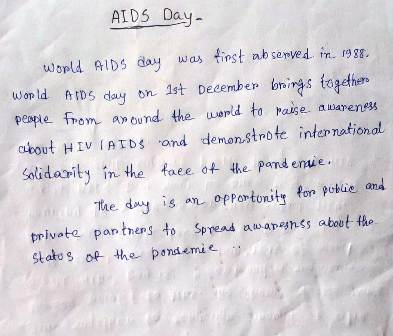 AIDS Day-
World AIDS day was first observed in 1988.
World AIDS day on 1st December brings together
people from around the world to raise awareness
about HIV/AIDS and demonstrate international
Solidarity in the face of the pandemic.
The day is an opportunity for public and
private partners to spread awareness about the
status of the pandemic ..